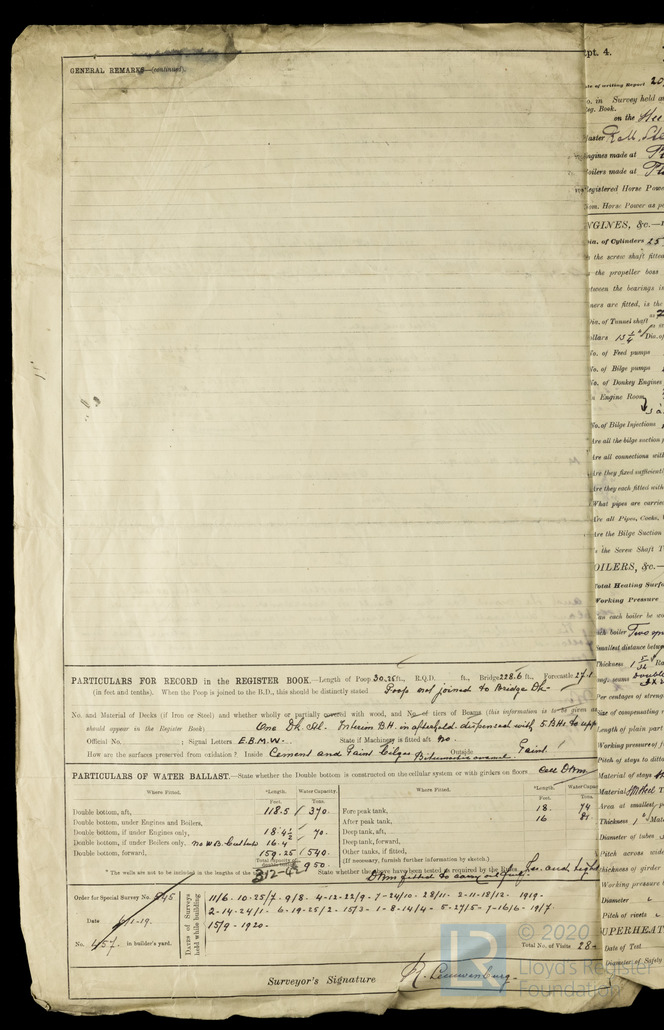 GENERAL REMARKS—(continued).
PARTICULARS FOR RECORD in the REGISTER BOOK.—Length of Poop 30.25 ft., R.Q.D. ft., Bridge 228.6 ft., Forecastle 27.1
(in feet and tenths). When the Poop is joined to the B.D., this should be distinctly stated Poop not joined to Bridge Dk.
No. and Material of Decks (if Iron or Steel) and whether wholly or partially covered with wood, and No. of tiers of Beams (this information is to be given as
should appear in the Register Book) One Dk. Stl. Interim B.H. in afterhold dispensed with 5 BHs to upp
Official No. ; Signal Letters E.B.M.W. State if Machinery is fitted aft no
How are the surfaces preserved from oxidation? Inside Cement and Paint bilges Outside Paint
PARTICULARS OF WATER BALLAST.—State whether the Double bottom is constructed on the cellular system or with girders on floors Cell
Where Fitted. *Length. Water Capacity. Where Fitted. *Length. Water Capac
Feet. Tons. Feet. Tons.
Double bottom, aft, 118.5 370. Fore peak tank, 18. 74
Double bottom, under Engines and Boilers, After peak tank, 16 81
Double bottom, if under Engines only, 18.4½ 70. Deep tank, aft,
Double bottom, if under Boilers only, no W.B. 16.4 Deep tank, forward,
Double bottom, forward, 159.25 540. Other tanks, if fitted,
Total capacity of double bottom 950. (If necessary, furnish further information by sketch.)
*The walls are not to be included in the lengths of the State whether the above have been tested as required by the Rules Yes and
Dkm fitted to carry
Order for Special Survey No. 545
Date 6/1-19.
No. 457. in builder's yard.
DATES of Surveys held while building
11/6-10-25/7-9/8-4-12-22/9-7-24/10-28/11-2-11-18/12-1919-
2-14-24/1-6-19-25/2-15/3-1-8-14/4-5-27/5-7-16/6-19/7-
15/9-1920-
Total No. of Visits 28
Surveyor's Signature R. Leeuwenburg.
pt. 4.
te of writing Report 20
o. in Survey held a
eg. Book.
on the
aster
ngines made at
oilers made at
Registered Horse Powe
om. Horse Power as p
NGINES, &c.—
ia. of Cylinders 25
the screw shaft fitted
the propeller boss
tween the bearings i
ners are fitted, is the
ia. of Tunnel shaft
ollars 13¼ Dia. of
o. of Feed pumps
o. of Bilge pumps
o. of Donkey Engines
n Engine Room
No. of Bilge Injections
Are all the bilge suction
Are all connections with
Are they fixed sufficient
Are they each fitted with
What pipes are carrie
Are all Pipes, Cocks,
Are the Bilge Suction
s the Screw Shaft T
OILERS, &c.—
Total Heating Surf
Working Pressure
an each boiler be
ch boiler Two
Smallest distance betw
Per centages of streng
ize of compensating
ength of plain part
Working pressure of
Pitch of stays to ditto
Material of stays
Area at smallest
Thickness Mat
Diameter of tubes
Pitch across wide
thickness of girder
Working pressure
Diameter
Pitch of rivets
UPERHEAT
Date of Test
Diameter of Safety
© 2020
Lloyd's Register
Foundation
LR